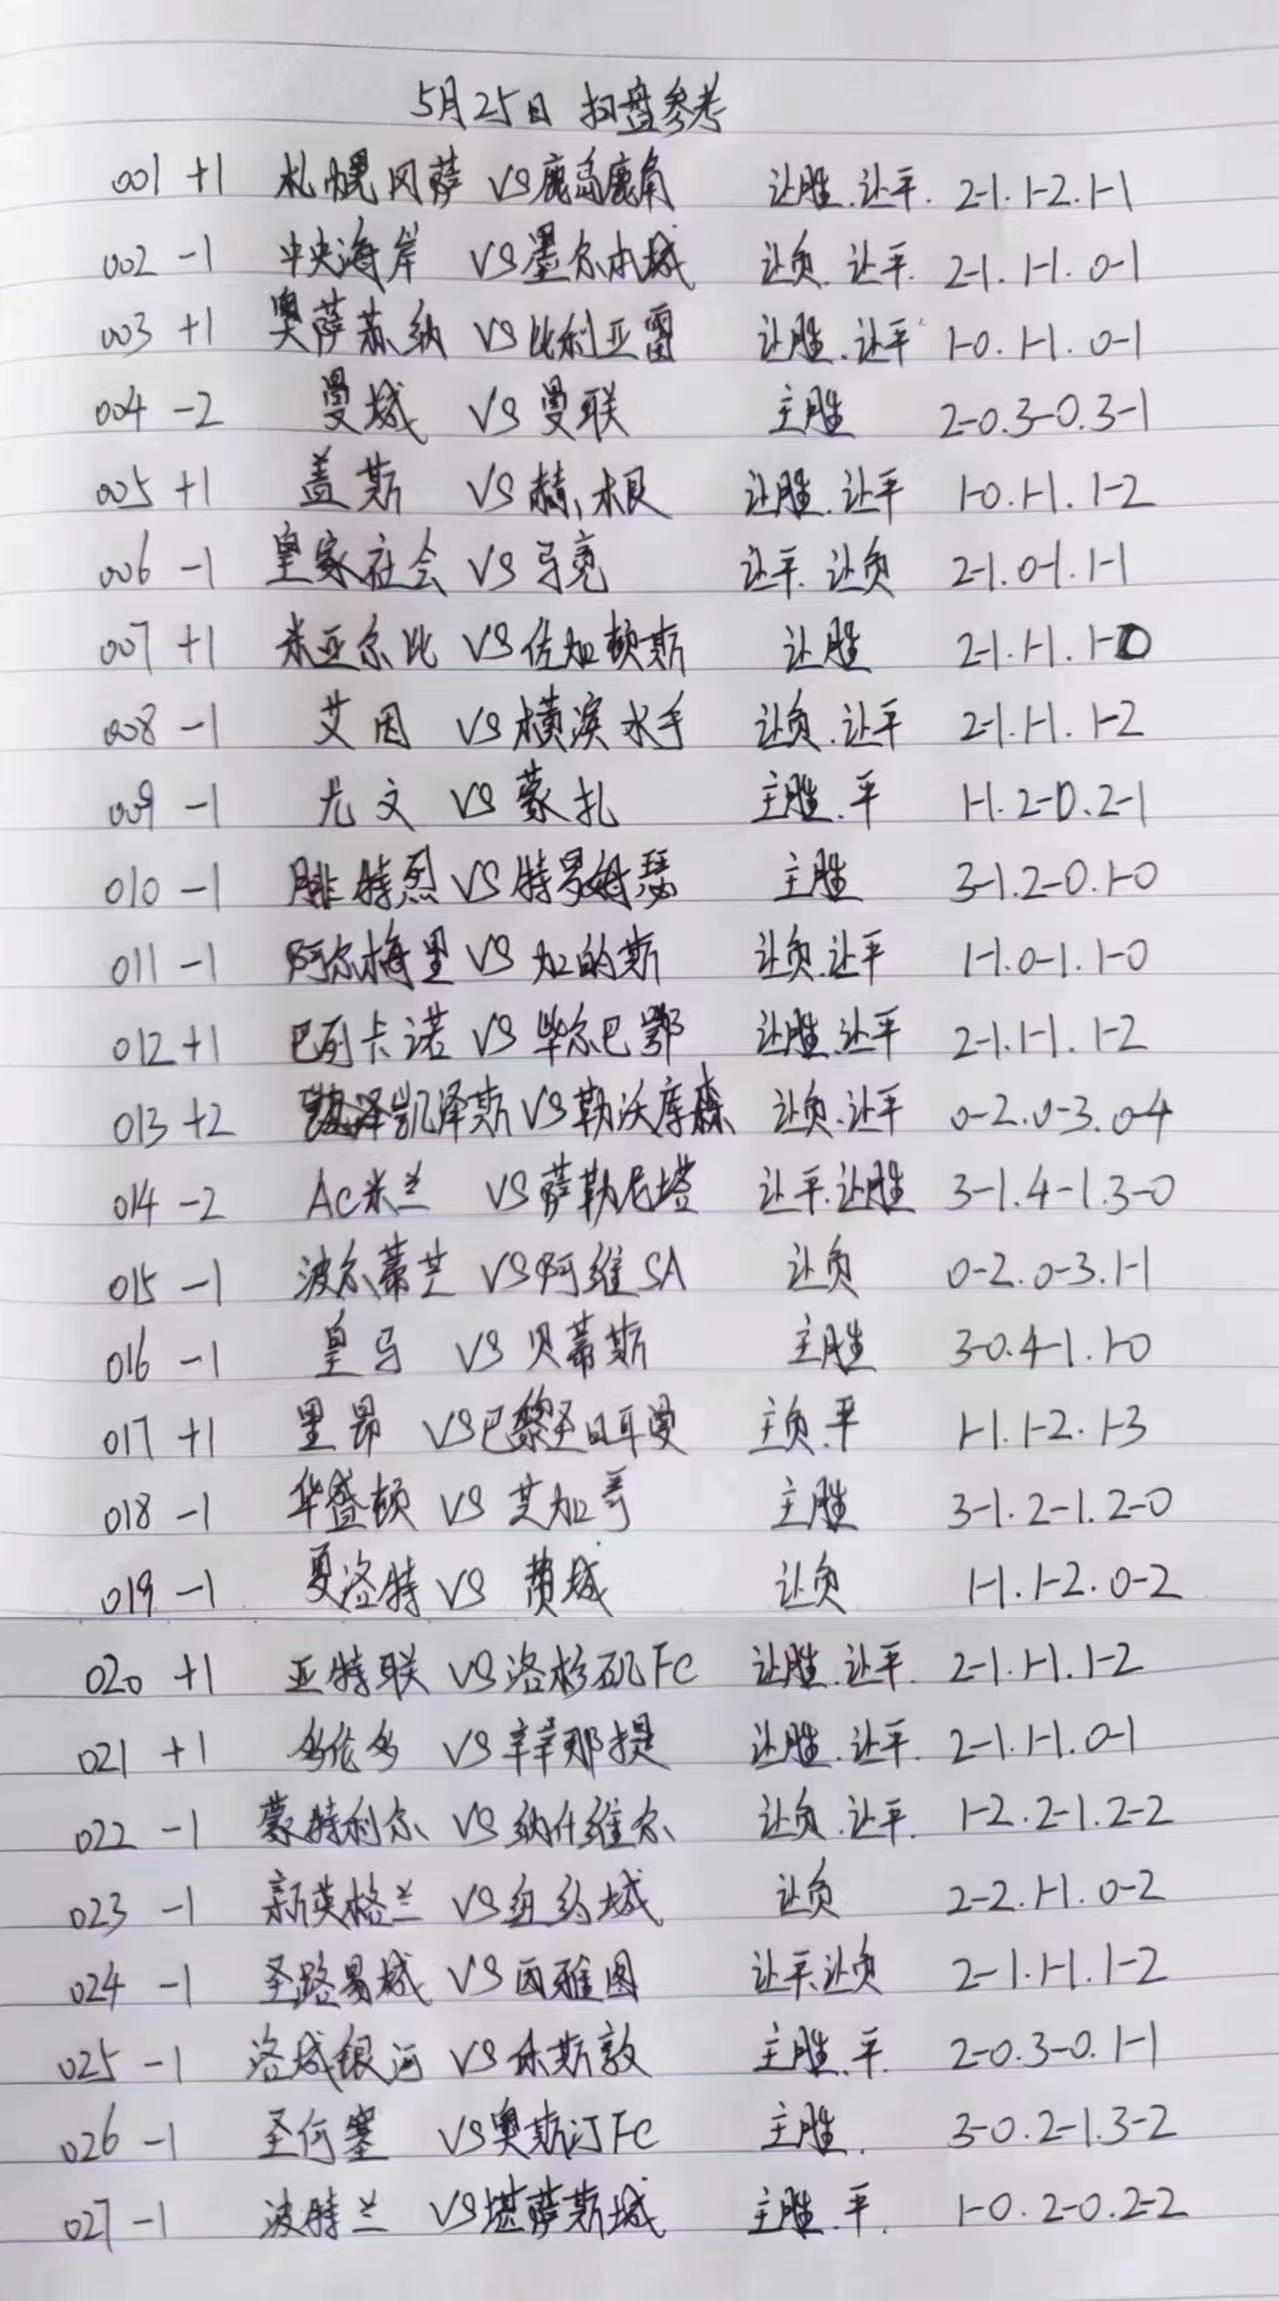 5月25日 扫盘参考
001 +1 札幌冈萨 VS 鹿岛鹿角 让胜.让平. 2-1.1-2.1-1
002 -1 中央海岸 VS 墨尔本城 让负.让平. 2-1.1-1.0-1
003 +1 奥萨苏纳 VS 比利亚雷 让胜.让平 1-0.1-1.0-1
004 -2 曼城 VS 曼联 主胜 2-0.3-0.3-1
005 +1 盖斯 VS 赫根 让胜.让平 1-0.1-1.1-2
006 -1 皇家社会 VS 马竞 让平.让负 2-1.0-1.1-1
007 +1 米亚尔比 VS 佐加顿斯 让胜 2-1.1-1.1-0
008 -1 艾因 VS 横滨水手 让负.让平 2-1.1-1.1-2
009 -1 尤文 VS 蒙扎 主胜.平 1-1.2-0.2-1
010 -1 腓特烈 VS 特罗姆瑟 主胜 3-1.2-0.1-0
011 -1 阿尔梅里 VS 加的斯 让负.让平 1-1.0-1.1-0
012 +1 巴列卡诺 VS 毕尔巴鄂 让胜.让平 2-1.1-1.1-2
013 +2 凯泽斯 VS 勒沃库森 让负.让平 0-2.0-3.0-4
014 -2 AC米兰 VS 萨勒尼塔 让平.让胜 3-1.4-1.3-0
015 -1 波尔蒂芒 VS 阿维SA 让负 0-2.0-3.1-1
016 -1 皇马 VS 贝蒂斯 主胜 3-0.4-1.1-0
017 +1 里昂 VS 巴黎圣日耳曼 主负.平 1-1.1-2.1-3
018 -1 华盛顿 VS 芝加哥 主胜 3-1.2-1.2-0
019 -1 夏洛特 VS 费城 让负 1-1.1-2.0-2
020 +1 亚特联 VS 洛杉矶FC 让胜.让平. 2-1.1-1.1-2
021 +1 多伦多 VS 辛辛那提 让胜.让平. 2-1.1-1.0-1
022 -1 蒙特利尔 VS 纳什维尔 让负.让平. 1-2.2-1.2-2
023 -1 新英格兰 VS 纽约城 让负 2-2.1-1.0-2
024 -1 圣路易城 VS 西雅图 让平.让负 2-1.1-1.1-2
025 -1 洛城银河 VS 休斯敦 主胜.平. 2-0.3-0.1-1
026 -1 圣何塞 VS 奥斯汀FC 主胜. 3-0.2-1.3-2
027 -1 波特兰 VS 堪萨斯城 主胜.平. 1-0.2-0.2-2